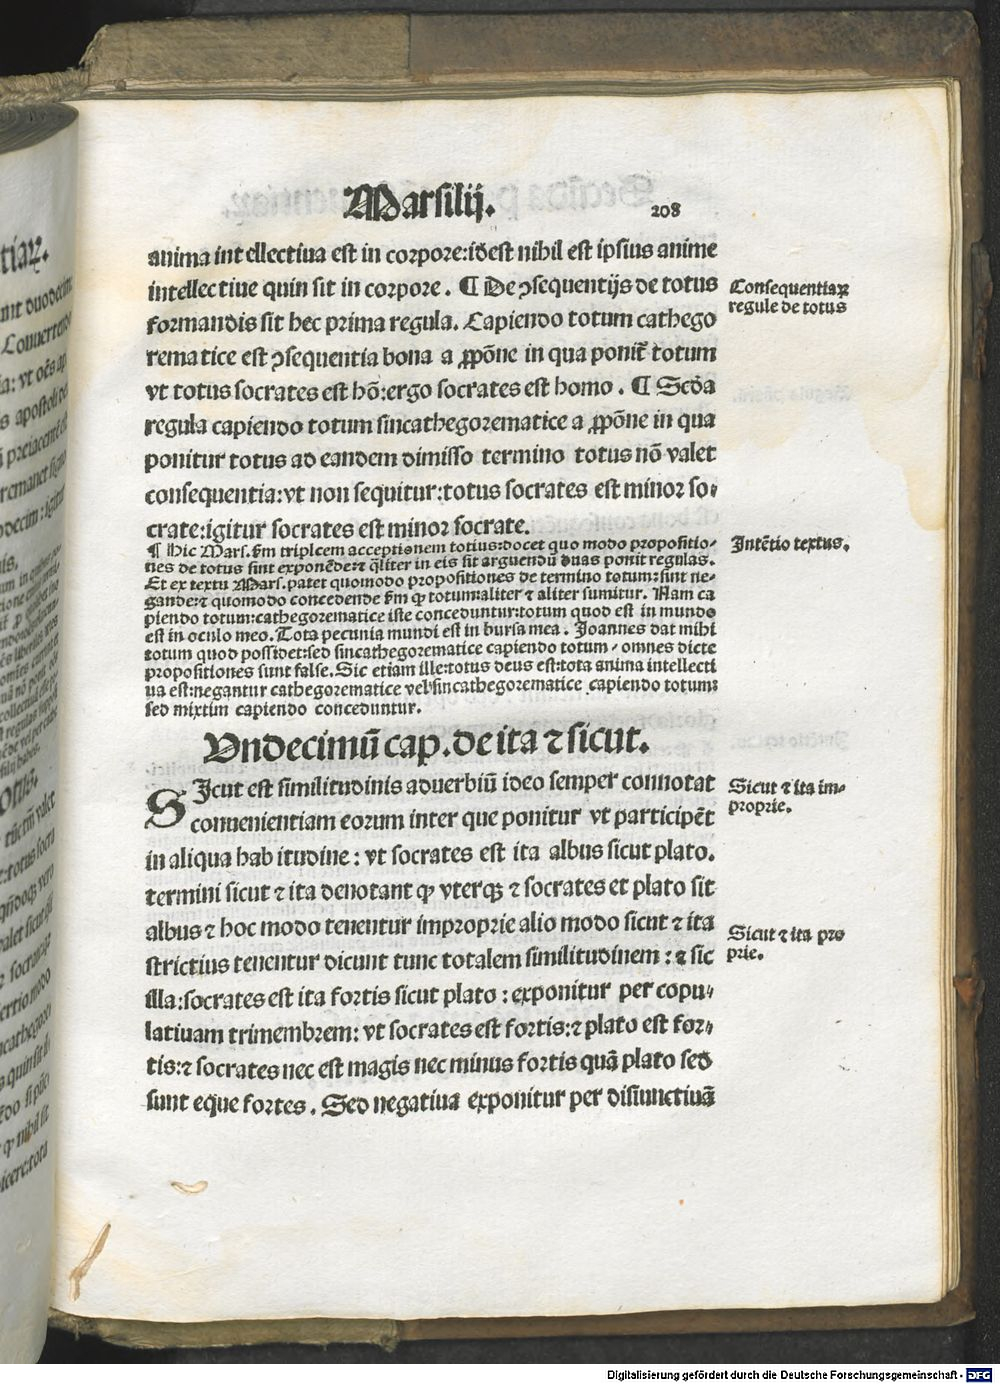 Marsilij.
208
anima intellectiua est in corpore:idest nihil est ipsius anime
intellectiue quin sit in corpore. ¶ De ꝯsequentijs de totus
formandis sit hec prima regula. Capiendo totum cathego
rematice est ꝯsequentia bona a ꝓpōne in qua ponit̄ totum
vt totus socrates est hō:ergo socrates est homo. ¶ Scd̄a
regula capiendo totum sincathegorematice a ꝓpōne in qua
ponitur totus ad eandem dimisso termino totus nō valet
consequentia:vt non sequitur:totus socrates est minor so⸗
crate:igitur socrates est minor socrate.
Consequentiaꝝ
regule de totus
¶ Hic Mars. s̄m triplcem acceptionem totius:docet quo modo propositio⸗
nes de totus sint exponēde:⁊ q̄liter in eis sit arguendū duas ponit regulas.
Et ex textu Mars. patet quomodo propositiones de termino totum:sint ne⸗
gande:⁊ quomodo concedende s̄m ꝙ totum:aliter ⁊ aliter sumitur. Nam ca
piendo totum:cathegorematice iste conceduntur:totum quod est in mundo
est in oculo meo. Tota pecunia mundi est in bursa mea. Joannes dat mihi
totum quod possidet:sed sincathegorematice capiendo totum, omnes dicte
propositiones sunt false. Sic etiam ille:totus deus est:tota anima intellecti
ua est:negantur cathegorematice vel sincathegorematice capiendo totum:
sed mixtim capiendo conceduntur.
Intētio textus.
Vndecimū cap. de ita ⁊ sicut.
SIcut est similitudinis aduerbiū ideo semper connotat
conuenientiam eorum inter que ponitur vt participēt
in aliqua habitudine: vt socrates est ita albus sicut plato.
termini sicut ⁊ ita denotant ꝙ vterqꝫ ⁊ socrates et plato sit
albus ⁊ hoc modo tenentur improprie alio modo sicut ⁊ ita
strictius tenentur dicunt tunc totalem similitudinem: ⁊ sic
illa:socrates est ita fortis sicut plato: exponitur per copu⸗
latiuam trimembrem: vt socrates est fortis:⁊ plato est for⸗
tis:⁊ socrates nec est magis nec minus fortis quā plato sed
sunt eque fortes. Sed negatiua exponitur per disiunctiuā
Sicut ⁊ ita im⸗
proprie.
Sicut ⁊ ita pro
prie.
Digitalisierung gefördert durch die Deutsche Forschungsgemeinschaft - DFG